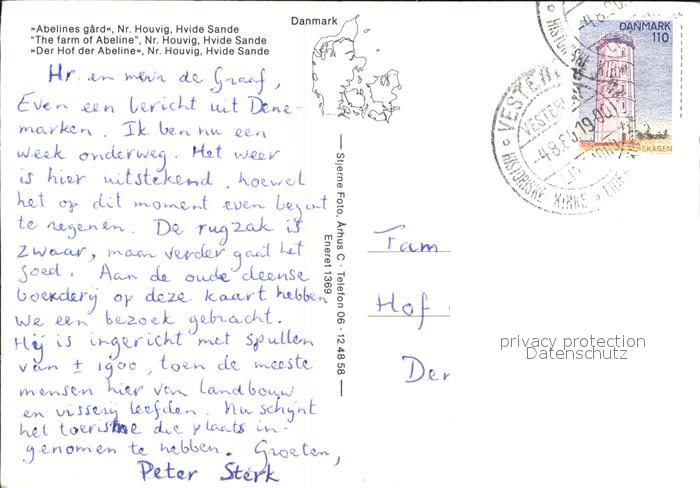 »Abelines gård«, Nr. Houvig, Hvide Sande
"The farm of Abeline", Nr. Houvig, Hvide Sande
»Der Hof der Abeline«, Nr. Houvig, Hvide Sande
Danmark
Hr. en mevr de Graaf,
Even een bericht uit Dene-
marken. Ik ben nu een
week onderweg. Het weer
is hier uitstekend, hoewel
het op dit moment even begint
te regenen. De rugzak is
zwaar, maar verder gaat het
goed. Aan de oude deense
boerderij op deze kaart hebben
we een bezoek gebracht.
Hij is ingericht met spullen
van ± 1900, toen de meeste
mensen hier van landbouw
en visserij leefden. Nu schijnt
het toerisme die plaats in-
genomen te hebben. Groeten,
Peter Sterk
Stjerne Foto, Århus C - Telefon 06 - 12 48 58
Eneret 1369
Fam
Hof
Der
DANMARK
110
SKAGEN
VESTER
-4.8.80.19.00
HISTORISKE KIRKE
privacy protection
Datenschutz